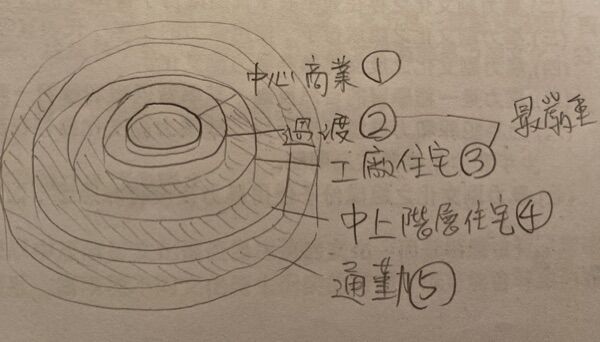 中心商業①
過渡②
最嚴重
工廠住宅③
中上階層住宅④
通勤⑤